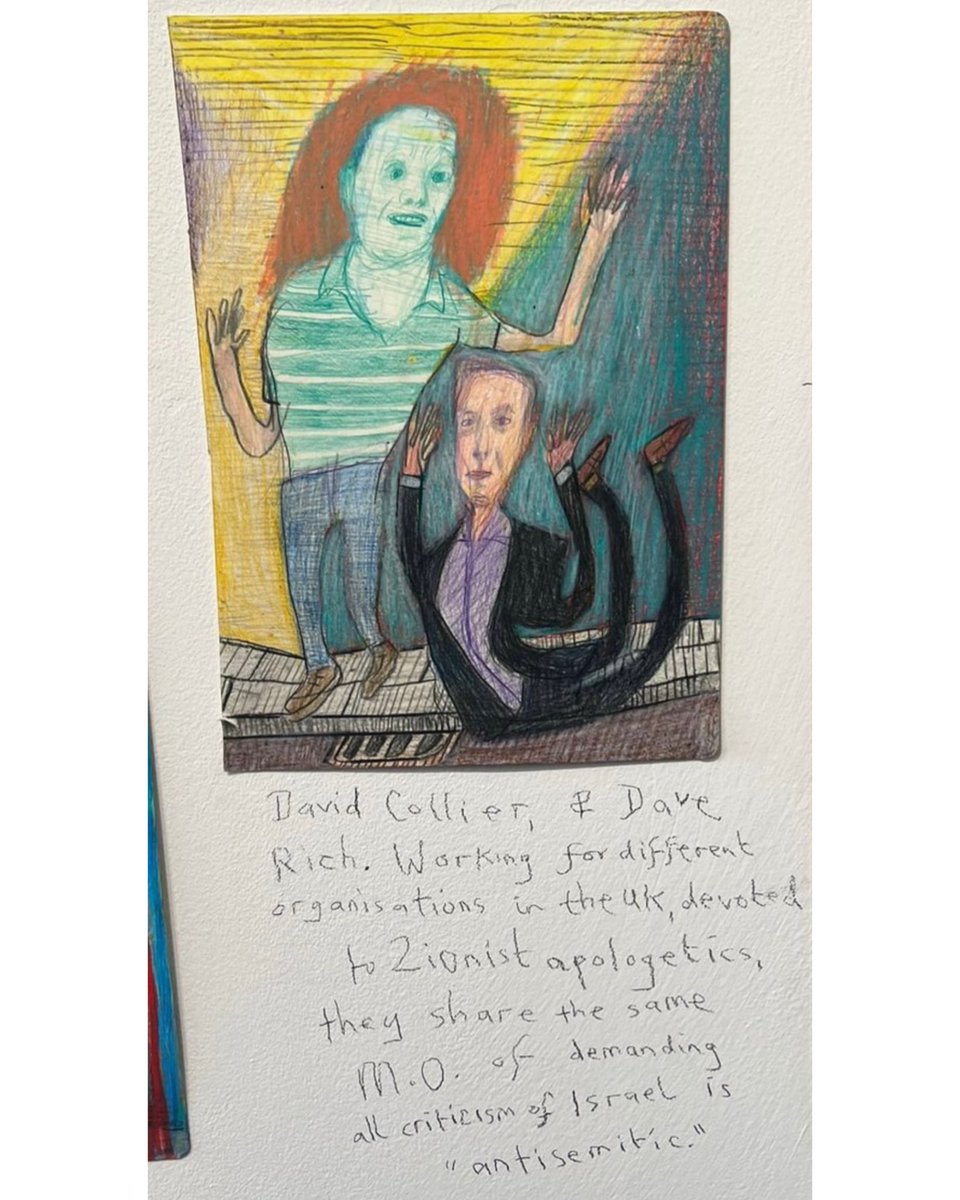 David Collier, & Dave
Rich. Working for different
organisations in the UK, devoted
to Zionist apologetics,
they share the same
M.O. of demanding
all criticism of Israel is
"antisemitic."